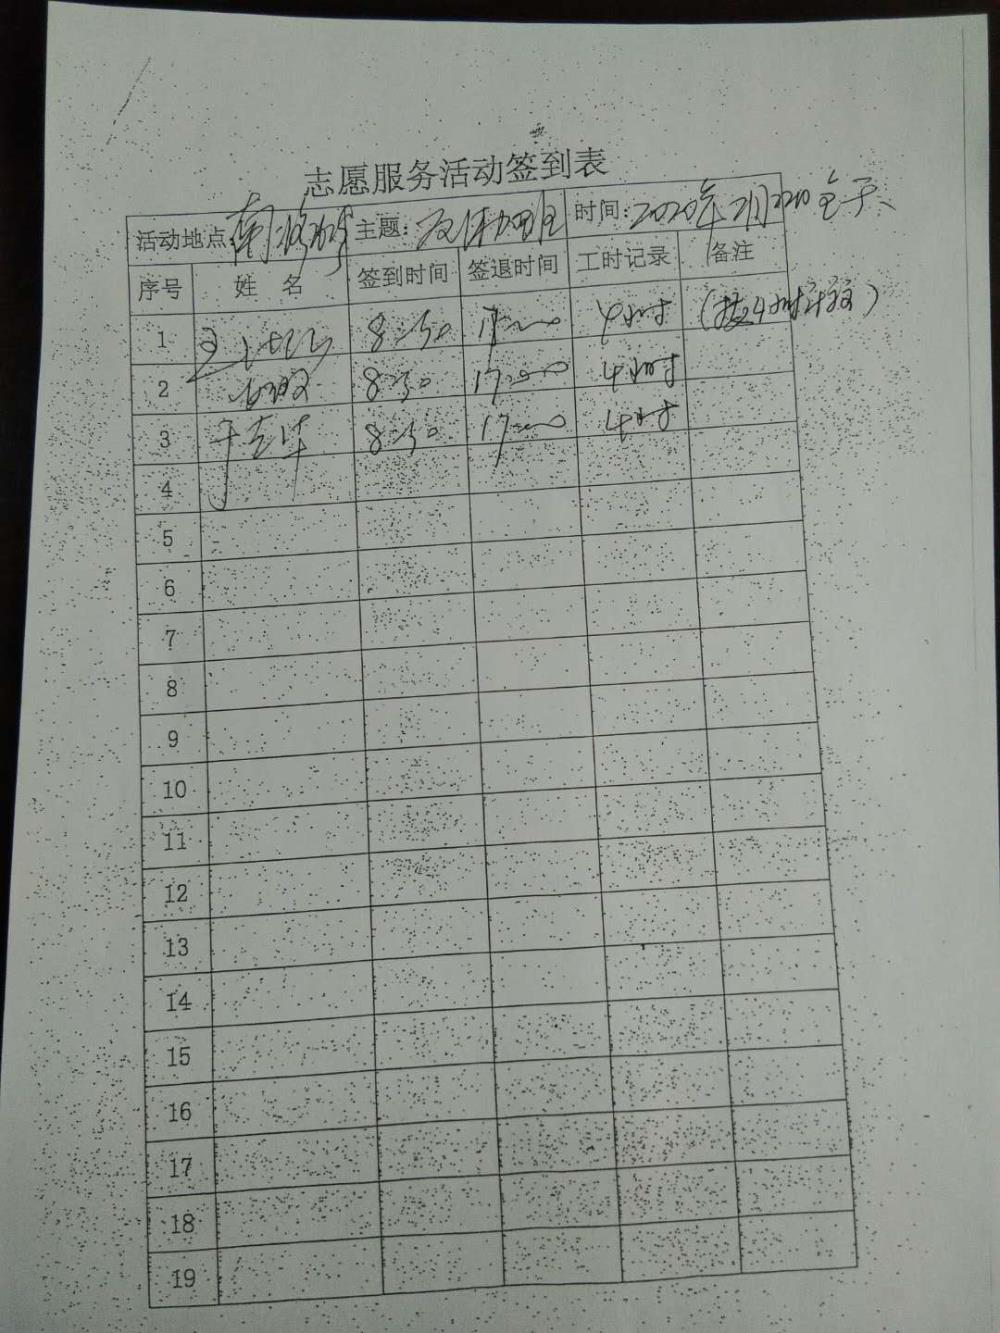 志愿服务活动签到表
活动地点 主题: 时间:2020年2月22日 全天
序号 姓 名 签到时间 签退时间 工时记录 备注
1 8:30 17:00 4小时 (按4小时计算)
2 8:30 17:00 4小时
3 8:30 17:00 4小时
4
5
6
7
8
9
10
11
12
13
14
15
16
17
18
19